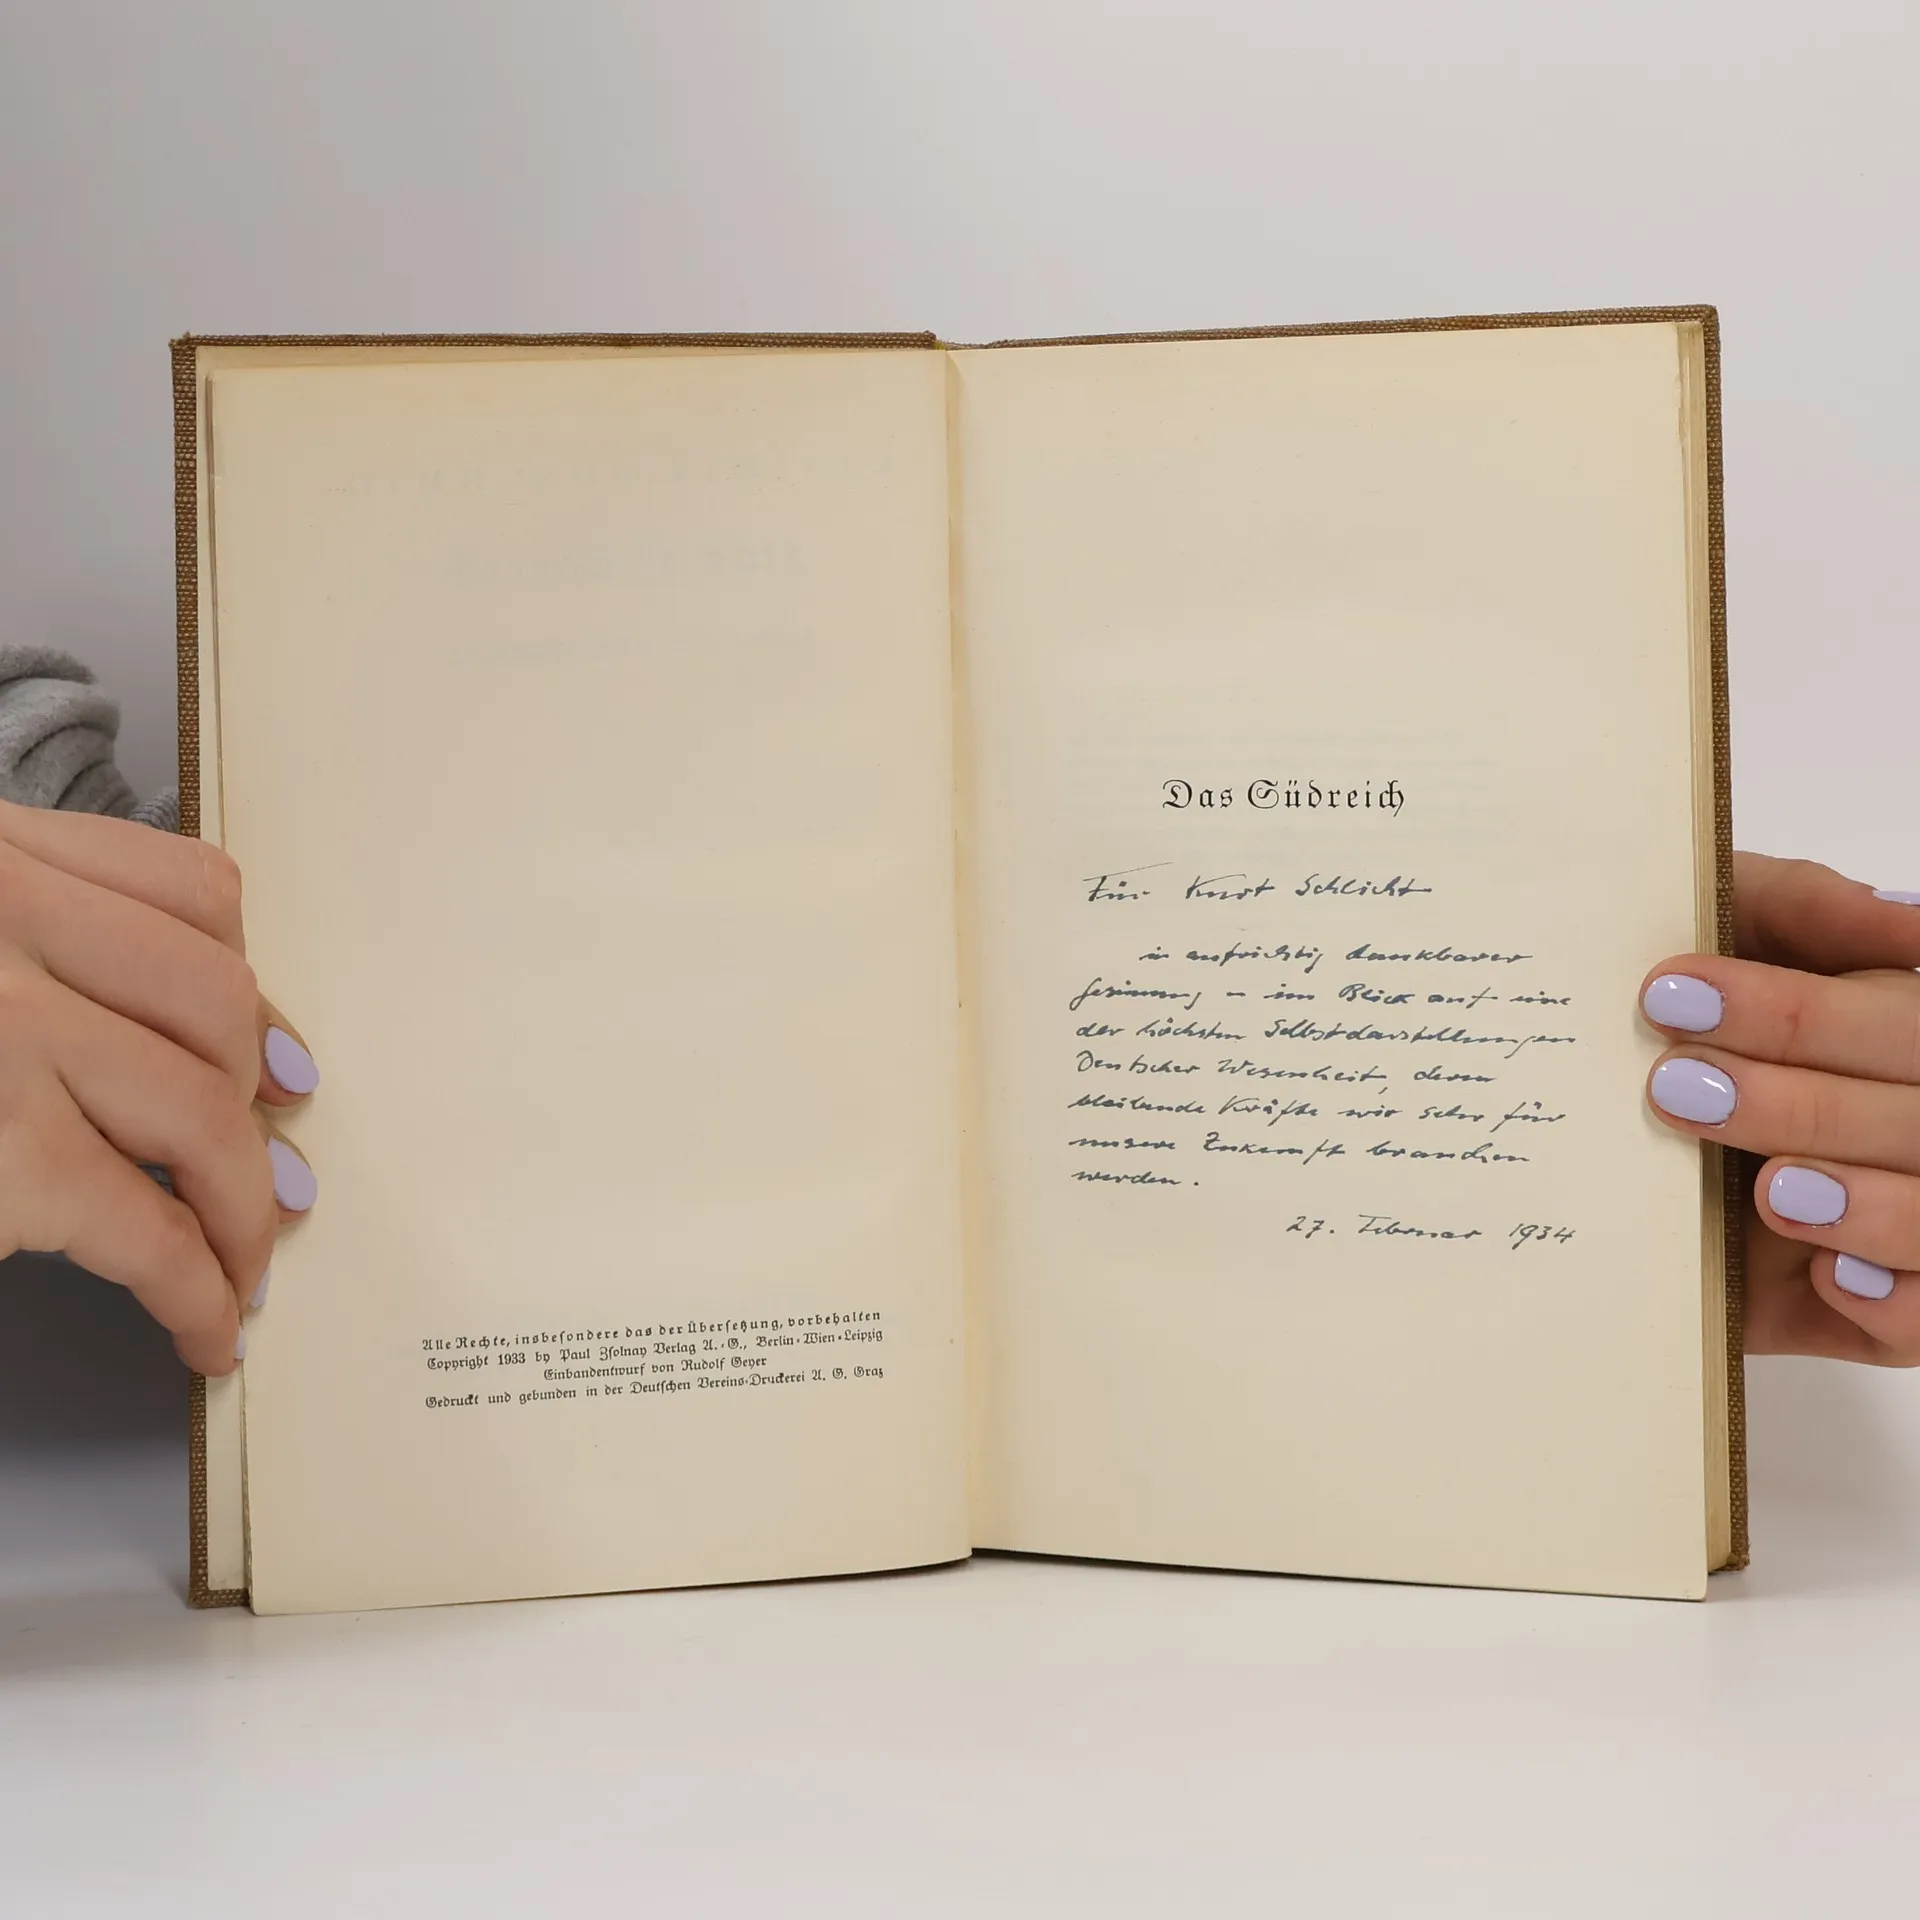 Alle Rechte, insbesondere das der Übersetzung, vorbehalten
Copyright 1933 by Paul Zsolnay Verlag A.-G., Berlin-Wien-Leipzig
Einbandentwurf von Rudolf Geyer
Gedruckt und gebunden in der Deutschen Vereins-Druckerei A. G. Graz
Das Südreich
Für Kurt Schlicht
in aufrichtig dankbarer
Gesinnung u im Blick auf eine
der höchsten Selbstdarstellungen
Deutscher Wesenheit, deren
bleibende Kräfte wir sehr für
unsere Zukunft brauchen
werden.
27. Februar 1934